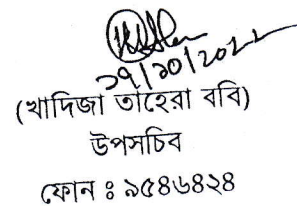 ১৭/১০/২০২২
(খাদিজা তাহেরা ববি)
উপসচিব
ফোন ঃ ৯৫৪৬৪২৪